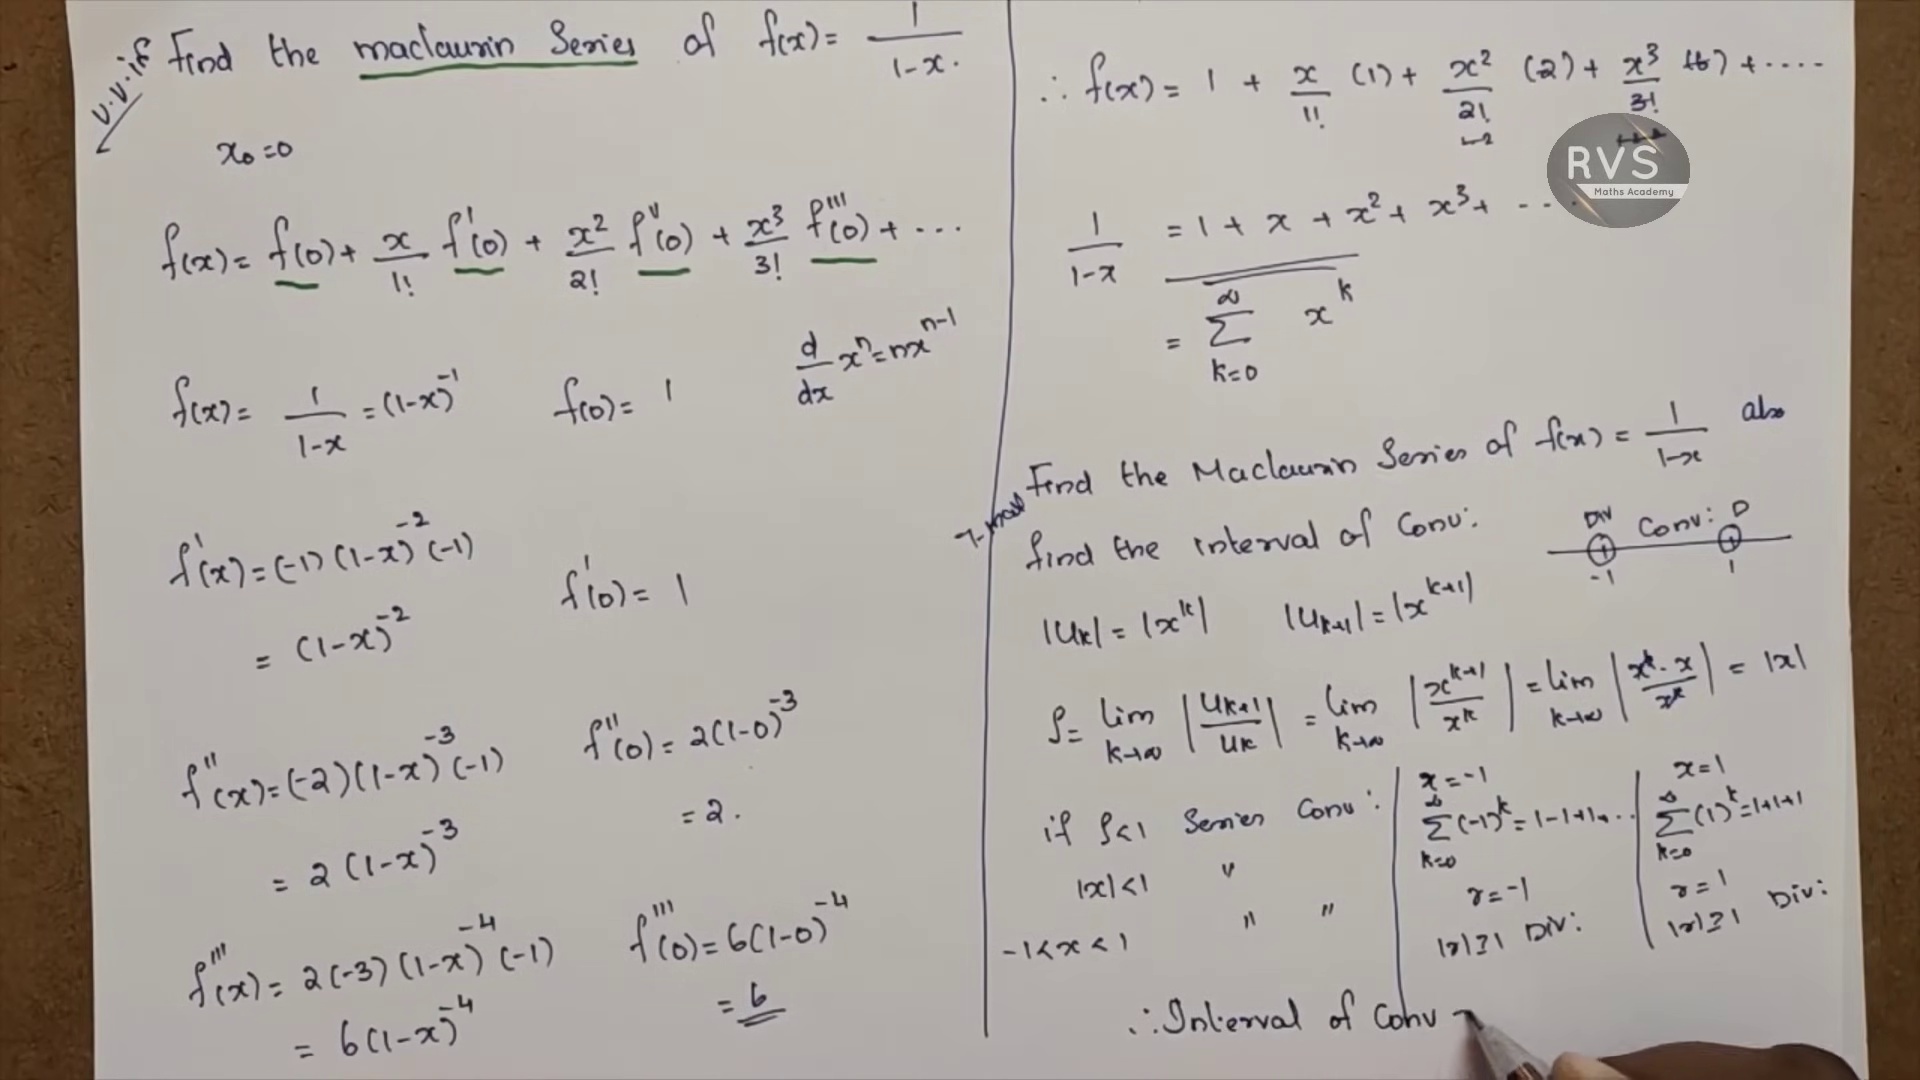 v.v.if Find the maclaurin Series of f(x) = 1/(1-x).
x₀ = 0
f(x) = f(0) + x/1! f'(0) + x²/2! f''(0) + x³/3! f'''(0) + ...
d/dx xⁿ = nxⁿ⁻¹
f(x) = 1/(1-x) = (1-x)⁻¹ f(0) = 1
f'(x) = (-1)(1-x)⁻²(-1) f'(0) = 1
= (1-x)⁻²
f''(x) = (-2)(1-x)⁻³(-1) f''(0) = 2(1-0)⁻³
= 2(1-x)⁻³ = 2.
f'''(x) = 2(-3)(1-x)⁻⁴(-1) f'''(0) = 6(1-0)⁻⁴
= 6(1-x)⁻⁴ = 6
∴ f(x) = 1 + x/1! (1) + x²/2! (2) + x³/3! (6) + ....
RVS
Maths Academy
1/(1-x) = 1 + x + x² + x³ + ...
= ∞ Σ k=0 xᵏ
Find the Maclaurin Series of f(x) = 1/(1-x) also
find the interval of Conv:
Div Conv: D
-1 1
|Uₖ| = |xᵏ| |Uₖ₊₁| = |xᵏ⁺¹|
ρ = lim k→∞ |Uₖ₊₁/Uₖ| = lim k→∞ |xᵏ⁺¹/xᵏ| = lim k→∞ |xᵏ·x/xᵏ| = |x|
if ρ<1 Series Conv:
|x|<1 "
-1<x<1 " "
x = -1
∞ Σ k=0 (-1)ᵏ = 1-1+1+...
r = -1
|r|≥1 Div:
x = 1
∞ Σ k=0 (1)ᵏ = 1+1+1
r = 1
|r|≥1 Div:
∴ Interval of Conv